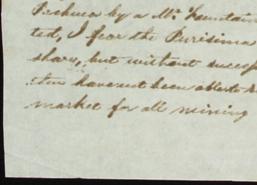 Pechua by a Mr. Fountain
ted, I fear the Purisima
share, but without success
then have not been able to
market for all mining